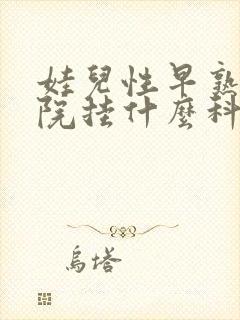 娃兒性早熟
院挂什麼科
烏塔